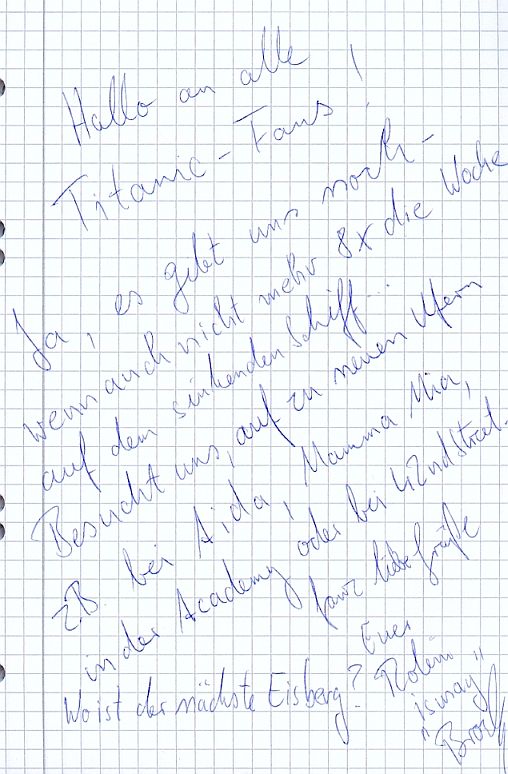 Hallo an alle
Titanic-Fans!
Ja, es gibt uns noch -
wenn auch nicht mehr 8x die Woche
auf dem sinkenden Schiff...
Besucht uns, auf zu neuen Ufern
z.B. bei Aida, Mamma Mia,
in der Academy oder bei 42ndStreet.
Ganz liebe Grüße
Euer
Robin
"Ismay"
Wo ist der nächste Eisberg?